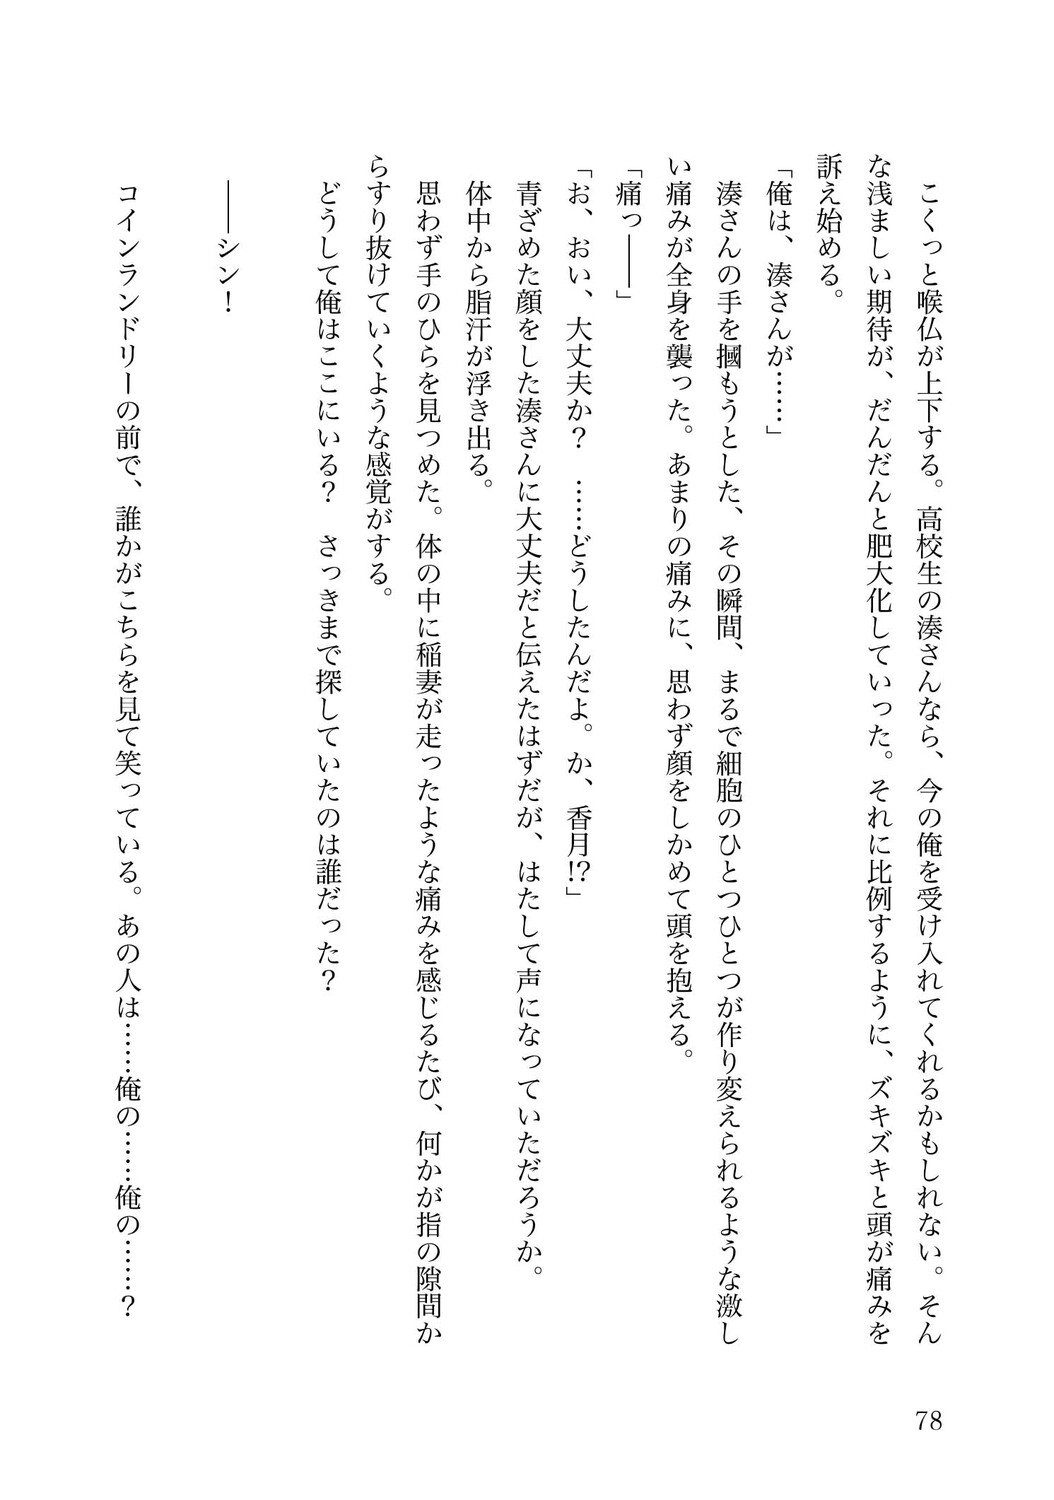 こくっと喉仏が上下する。高校生の湊さんなら、今の俺を受け入れてくれるかもしれない。そん
な浅ましい期待が、だんだんと肥大化していった。それに比例するように、ズキズキと頭が痛みを
訴え始める。
「俺は、湊さんが……」
　湊さんの手を摑もうとした、その瞬間、まるで細胞のひとつひとつが作り変えられるような激し
い痛みが全身を襲った。あまりの痛みに、思わず顔をしかめて頭を抱える。
「痛っ――」
「お、おい、大丈夫か？　……どうしたんだよ。か、香月!?」
　青ざめた顔をした湊さんに大丈夫だと伝えたはずだが、はたして声になっていただろうか。
　体中から脂汗が浮き出る。
　思わず手のひらを見つめた。体の中に稲妻が走ったような痛みを感じるたび、何かが指の隙間か
らすり抜けていくような感覚がする。
　どうして俺はここにいる？　さっきまで探していたのは誰だった？
　――シン！
　コインランドリーの前で、誰かがこちらを見て笑っている。あの人は……俺の……俺の……？
78